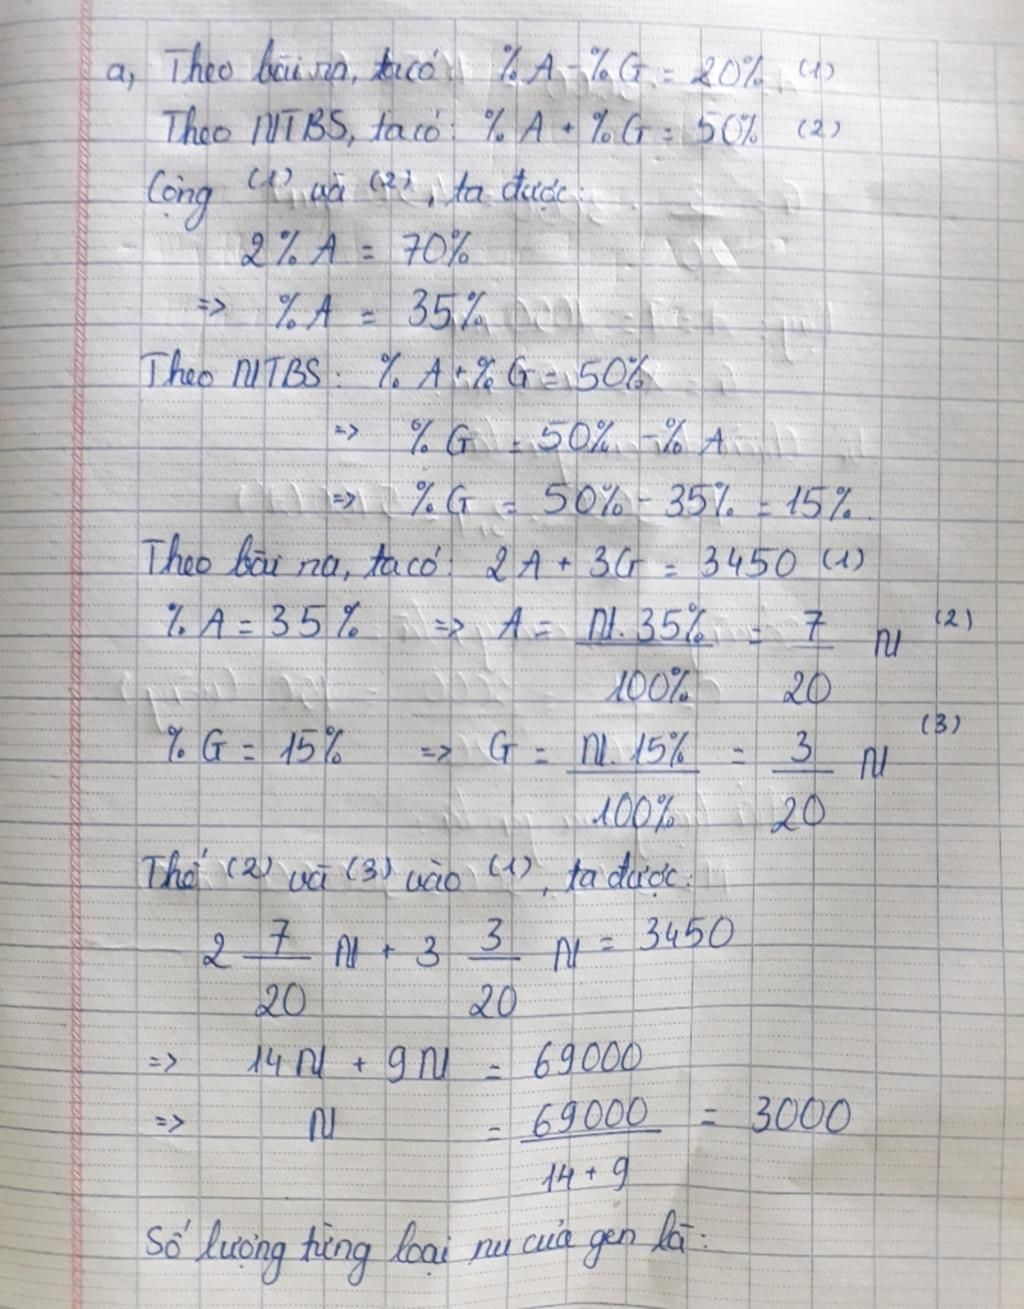 a, Theo bài ra, ta có: %A - %G = 20% (1)
Theo NTBS, ta có: %A + %G = 50% (2)
Cộng (1) và (2), ta được:
2%A = 70%
=> %A = 35%
Theo NTBS: %A + %G = 50%
=> %G = 50% - %A
=> %G = 50% - 35% = 15%.
Theo bài ra, ta có: 2A + 3G = 3450 (1)
%A = 35% => A = N.35%/100% = 7/20 N (2)
%G = 15% => G = N.15%/100% = 3/20 N (3)
Thế (2) và (3) vào (1), ta được:
2 7/20 N + 3 3/20 N = 3450
=> 14N + 9N = 69000
=> N = 69000/14 + 9 = 3000
Số lượng từng loại nu của gen là: